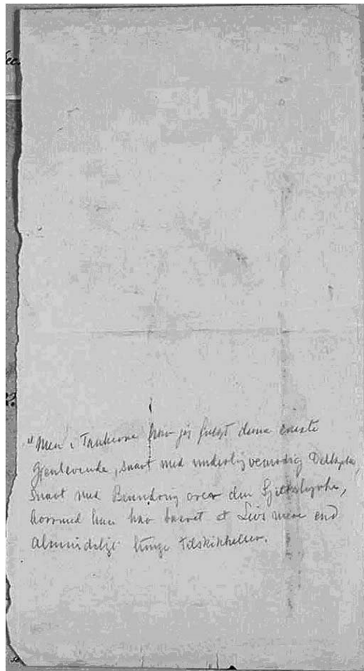 "Men i Tankerne har jeg fulgt denne eneste
Gjenlevende, snart med underlig vemodig Deltagelse,
snart med Beundring over den Sjælsstyrke,
hvormed hun har baaret et Livs mere end
almindelige tunge Tilskikkelser.